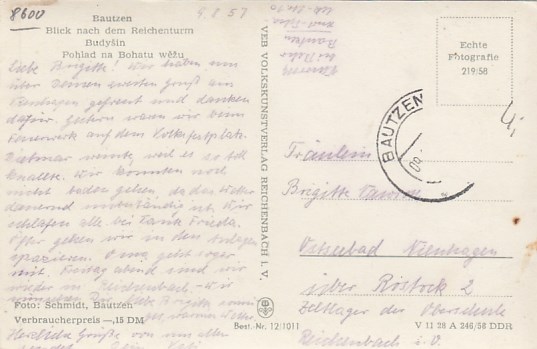 8600
Bautzen
9 8 57
Blick nach dem Reichenturm
Budyšin
Pohlad na Bohatu wěžu
Liebe Brigitte! Wir haben uns
über Deinen ersten Gruß aus
Nienhagen gefreut und danken
dafür. Gestern waren wir beim
Feuerwerk auf dem Volksfestplatz.
Dietmar weinte, weil es so toll
knallte. Wir konnten noch
nicht baden gehen, da das Wetter
dauernd unbeständig ist. Wir
schlafen alle bei Tante Frieda.
Öfter gehen wir in den Anlagen
spazieren. Oma geht sogar
mit. Freitag abend sind wir
wieder in Reichenbach. Wir
wünschen Brigitte
warmes Wetter.
Herzliche Grüße von uns allen
Foto: Schmidt, Bautzen
Verbraucherpreis —,15 DM
VEB VOLKSKUNSTVERLAG REICHENBACH I. V.
Best.-Nr. 12/1011
Bautzen
Echte
Fotografie
219/58
BAUTZEN
09
Fräulein
Brigitte
Ostseebad Nienhagen
über Rostock 2
Zeltlager der Oberschule
Reichenbach i. V.
V 11 28 A 246/58 DDR